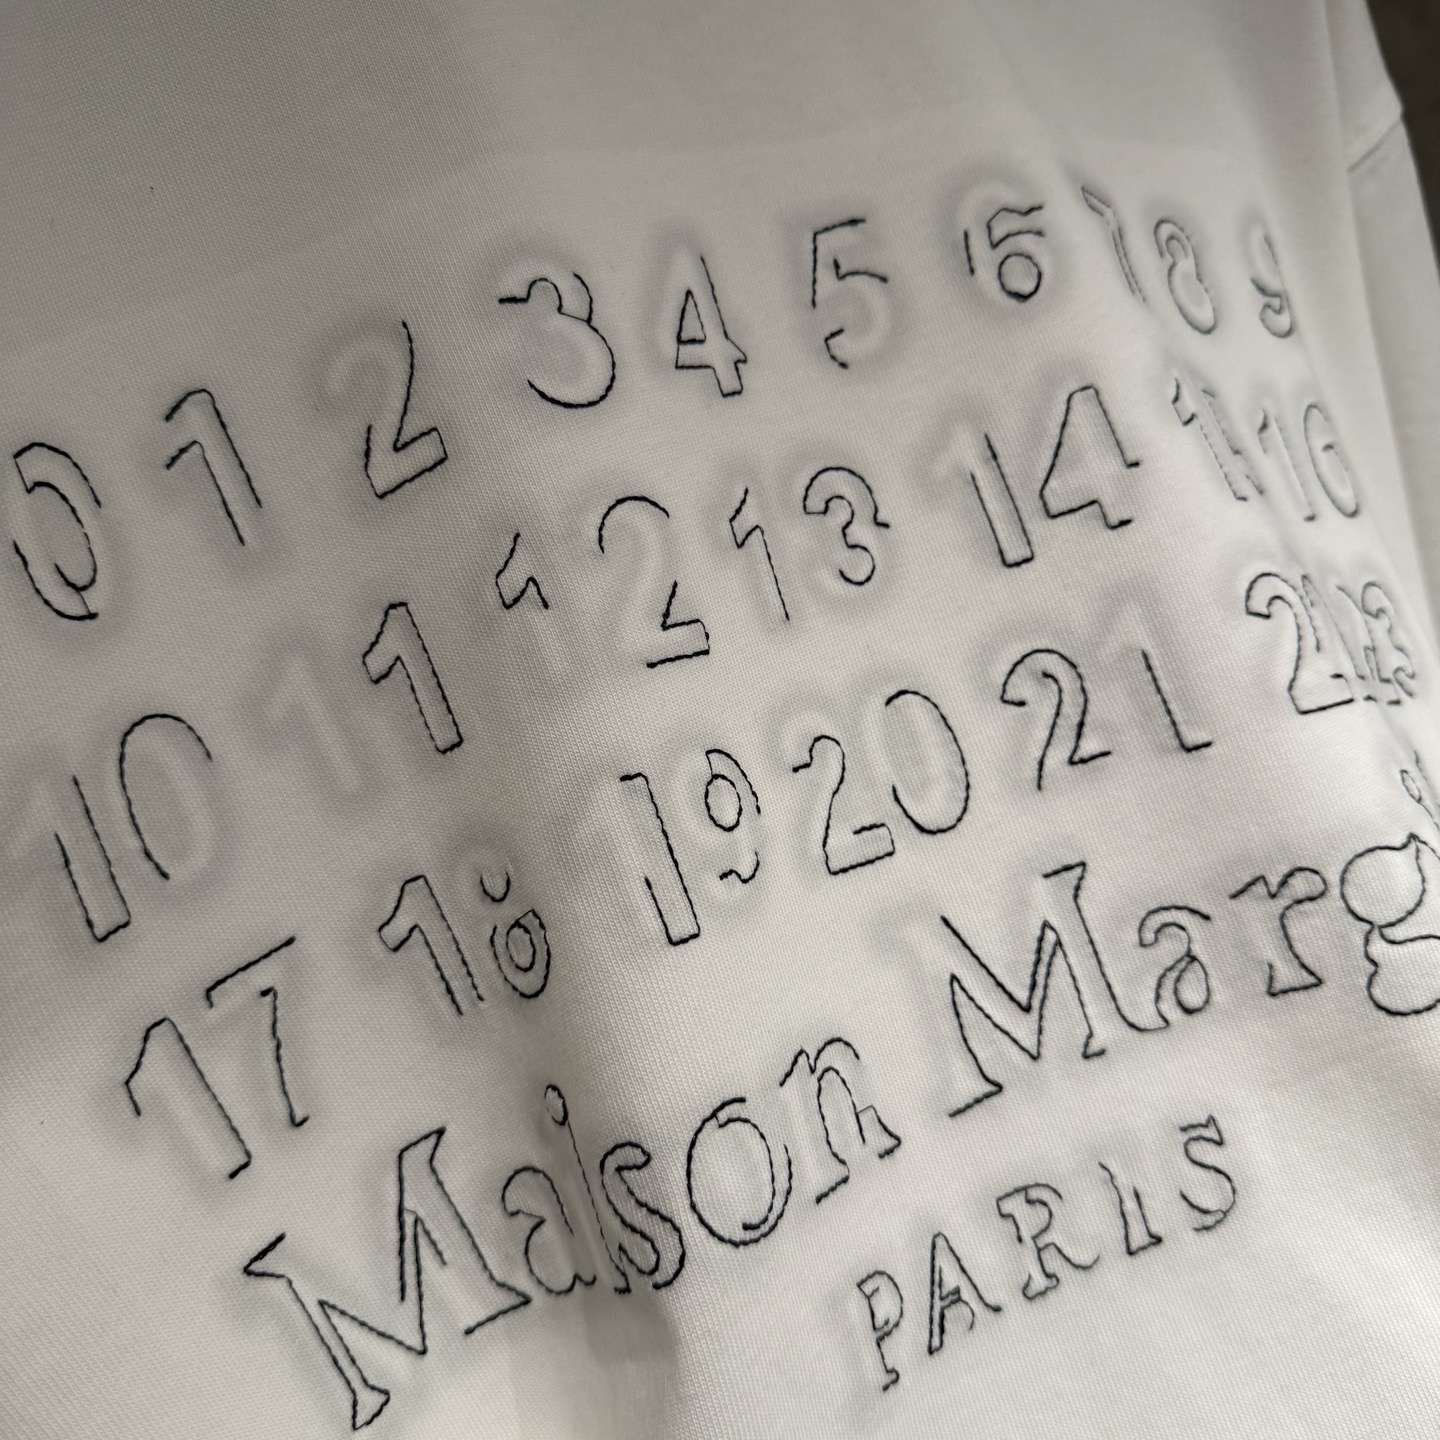 0 1 2 3 4 5 6 7 8 9
10 11 12 13 14 16
17 18 19 20 21
Maison Marg
PARIS